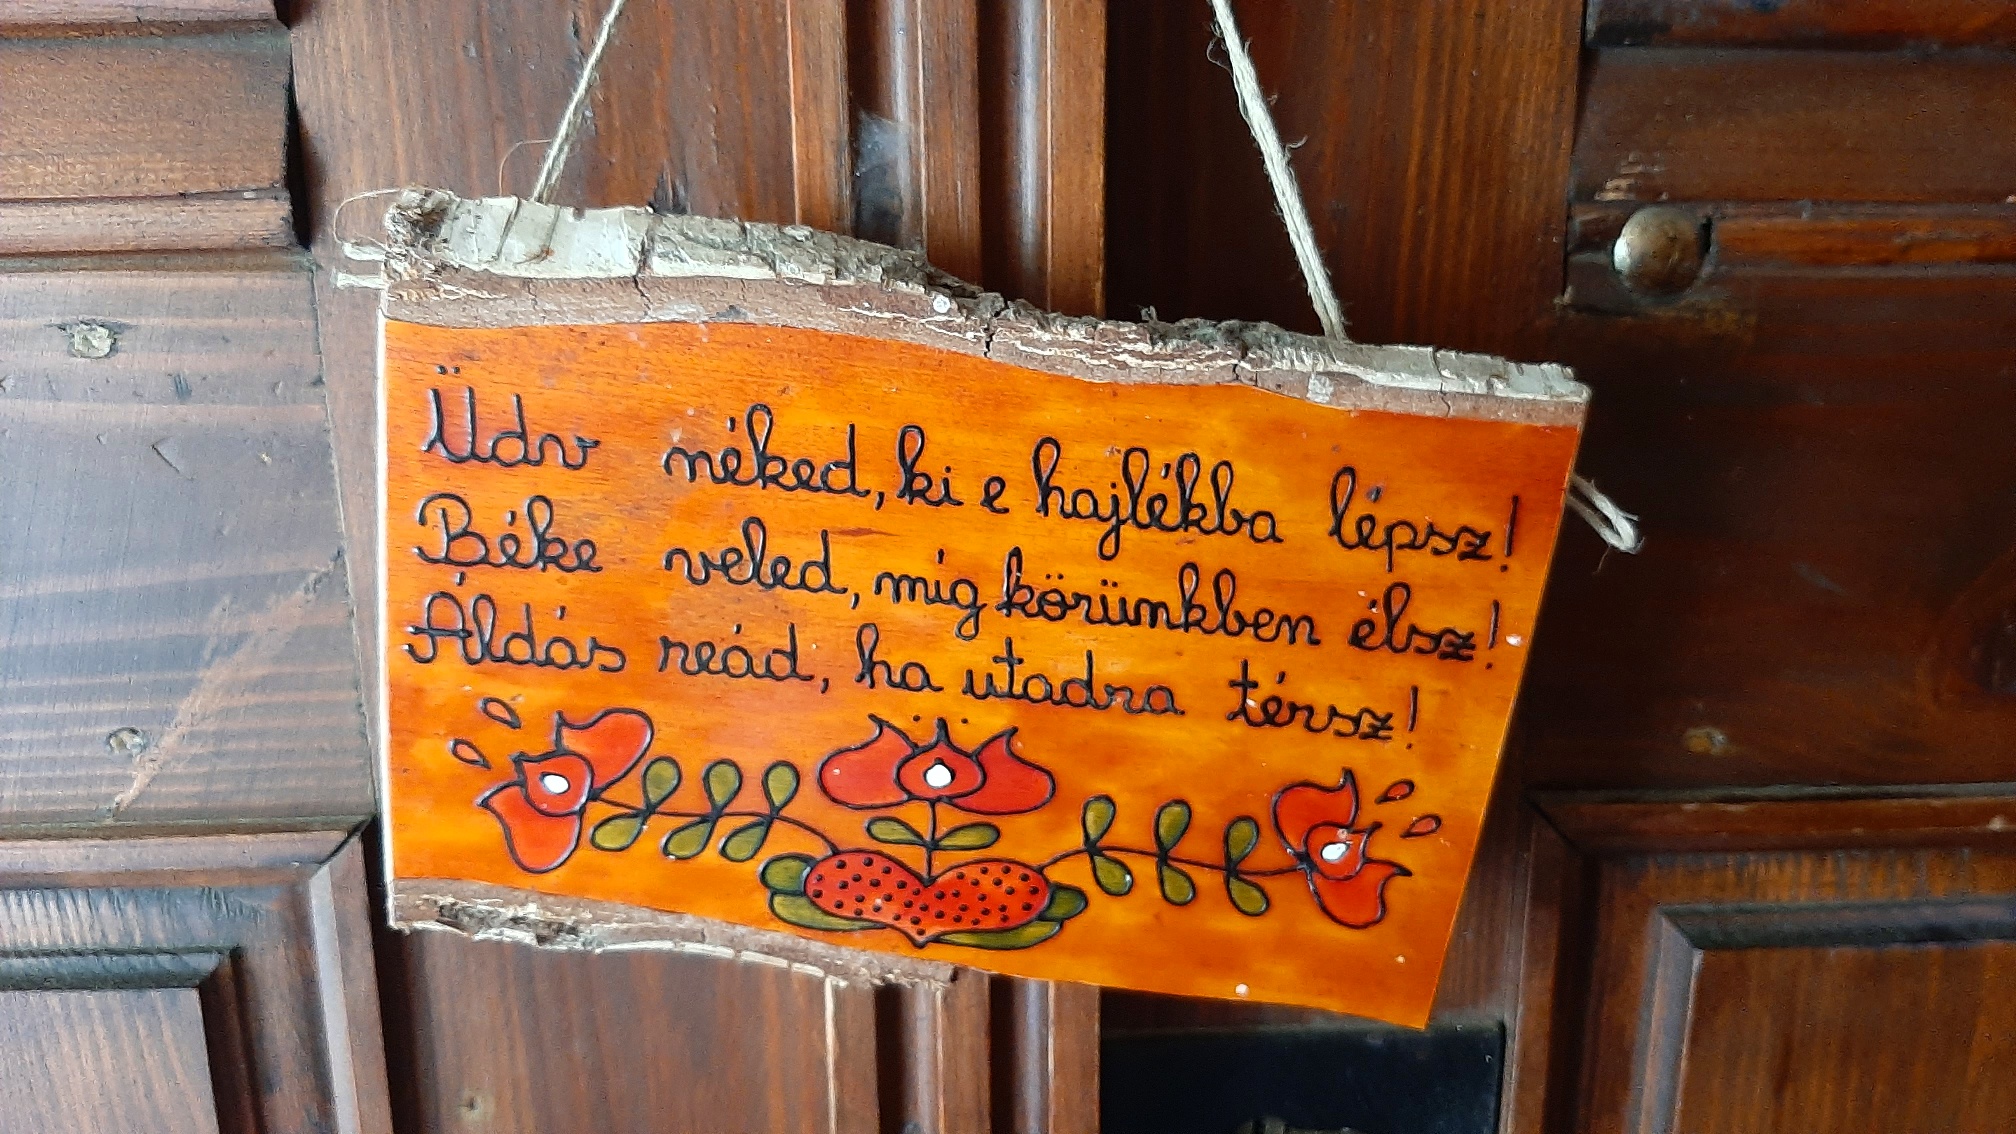 Üdv néked, ki e hajlékba lépsz!
Béke veled, míg körünkben élsz!
Áldás reád, ha utadra térsz!